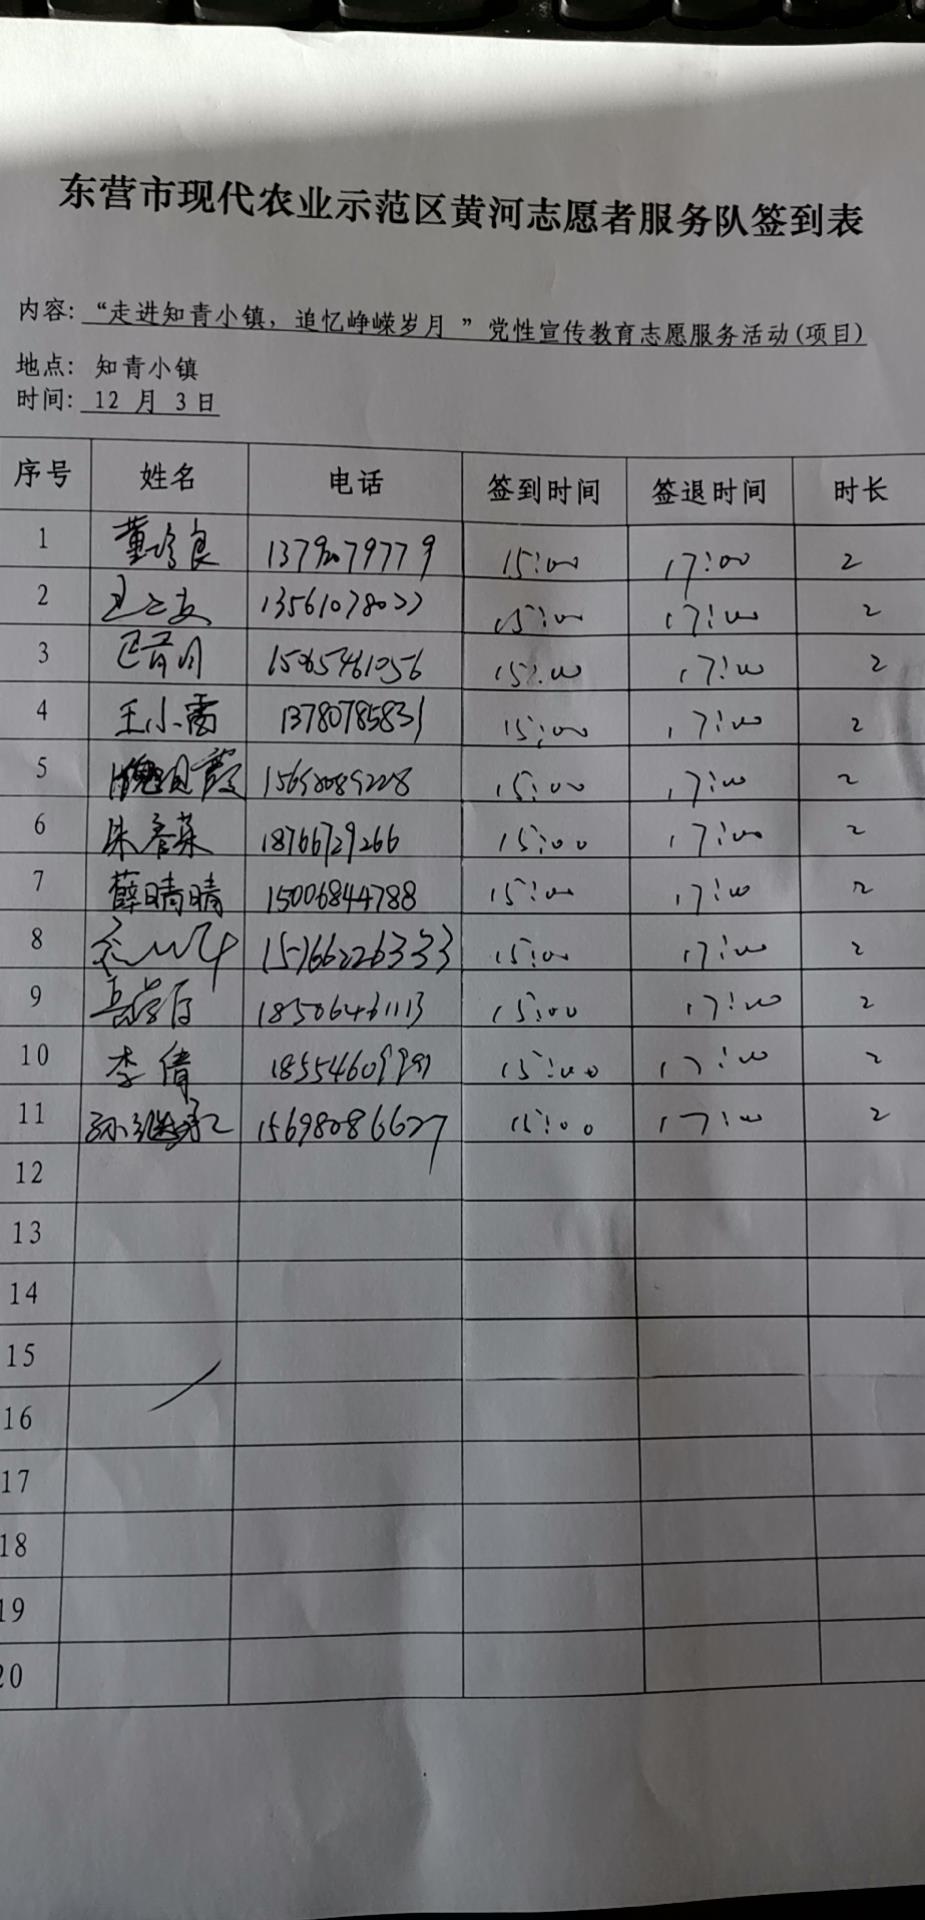 东营市现代农业示范区黄河志愿者服务队签到表
内容: “走进知青小镇，追忆峥嵘岁月 ”党性宣传教育志愿服务活动(项目)
地点: 知青小镇
时间: 12 月 3日
序号 姓名 电话 签到时间 签退时间 时长
1 13792079779 15:00 17:00 2
2 13561078022 15:00 17:00 2
3 15065461056 15:00 17:00 2
4 王小雷 13780785831 15:00 17:00 2
5 15698089228 15:00 17:00 2
6 朱春英 18766729266 15:00 17:00 2
7 薛晴晴 15006844788 15:00 17:00 2
8 15766226333 15:00 17:00 2
9 18506461113 15:00 17:00 2
10 李倩 15:00 17:00 2
11 孙继承 15698086627 15:00 17:00 2
12
13
14
15
16
17
18
19
20